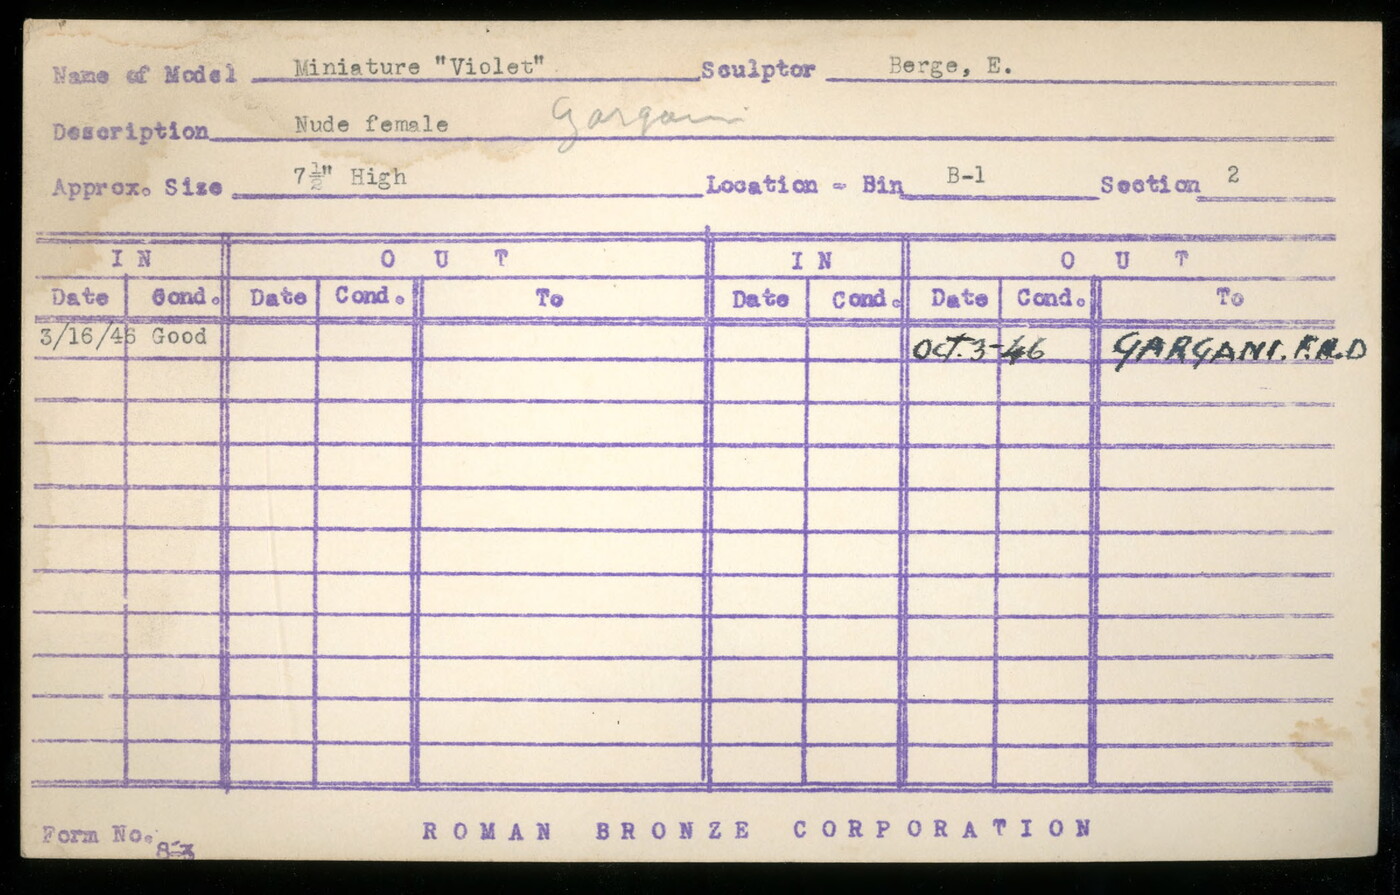 Name of Model Miniature "Violet" Sculptor Berge, E.
Description Nude female Gargani
Approx. Size 7½" High Location - Bin B-1 Section 2
IN OUT IN OUT
Date Cond. Date Cond. To Date Cond. Date Cond. To
3/16/46 Good OCT.3-46 GARGANI. F.R.D
Form No. 8-3
ROMAN BRONZE CORPORATION